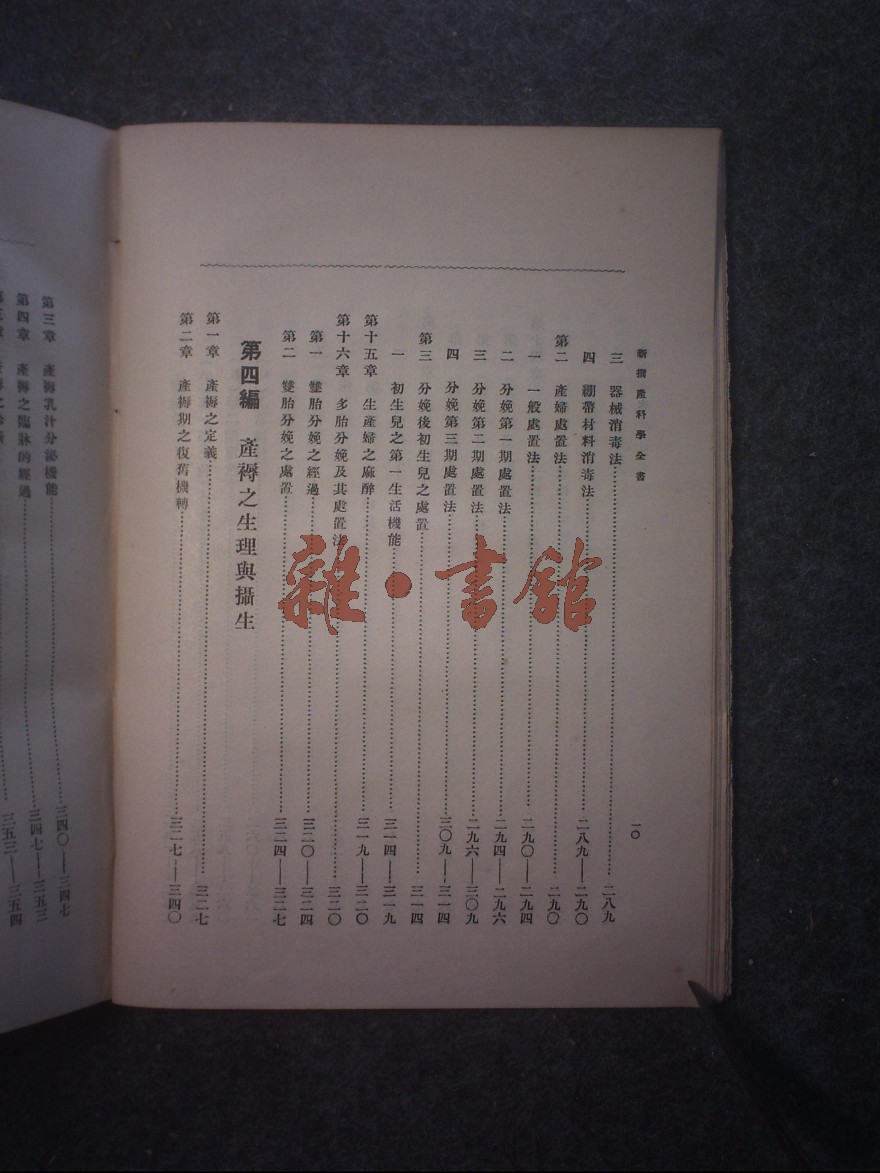 新撰產科學全書
一〇
三 器械消毒法 二八九
四 綳帶材料消毒法 二八九——二九〇
第二 產婦處置法 二九〇
一 一般處置法 二九〇——二九四
二 分娩第一期處置法 二九四——二九六
三 分娩第二期處置法 二九六——三〇九
四 分娩第三期處置法 三〇九——三一四
第三 分娩後初生兒之處置 三一四
一 初生兒之第一生活機能 三一四——三一九
第十五章 生產婦之麻醉 三一九——三二〇
第十六章 多胎分娩及其處置法 三二〇
第一 雙胎分娩之經過 三二〇——三二四
第二 雙胎分娩之處置 三二四——三二七
第四編 產褥之生理與攝生
第一章 產褥之定義 三二七
第二章 產褥期之復舊機轉 三二七——三四〇
第三章 產褥乳汁分泌機能 三四〇——三四七
第四章 產褥之臨牀的經過 三四七——三五三
三五三——三五四
雜·書館